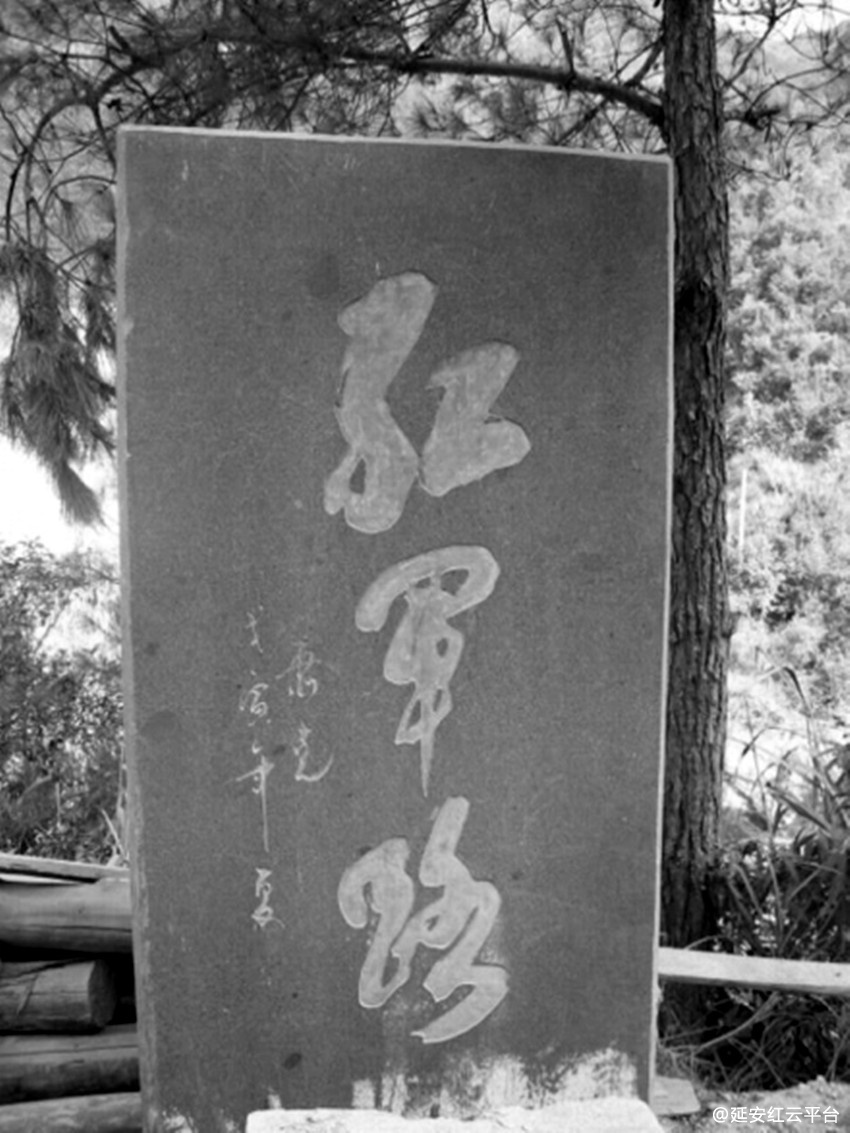 红军路
萧克
戊寅年夏
@延安红云平台